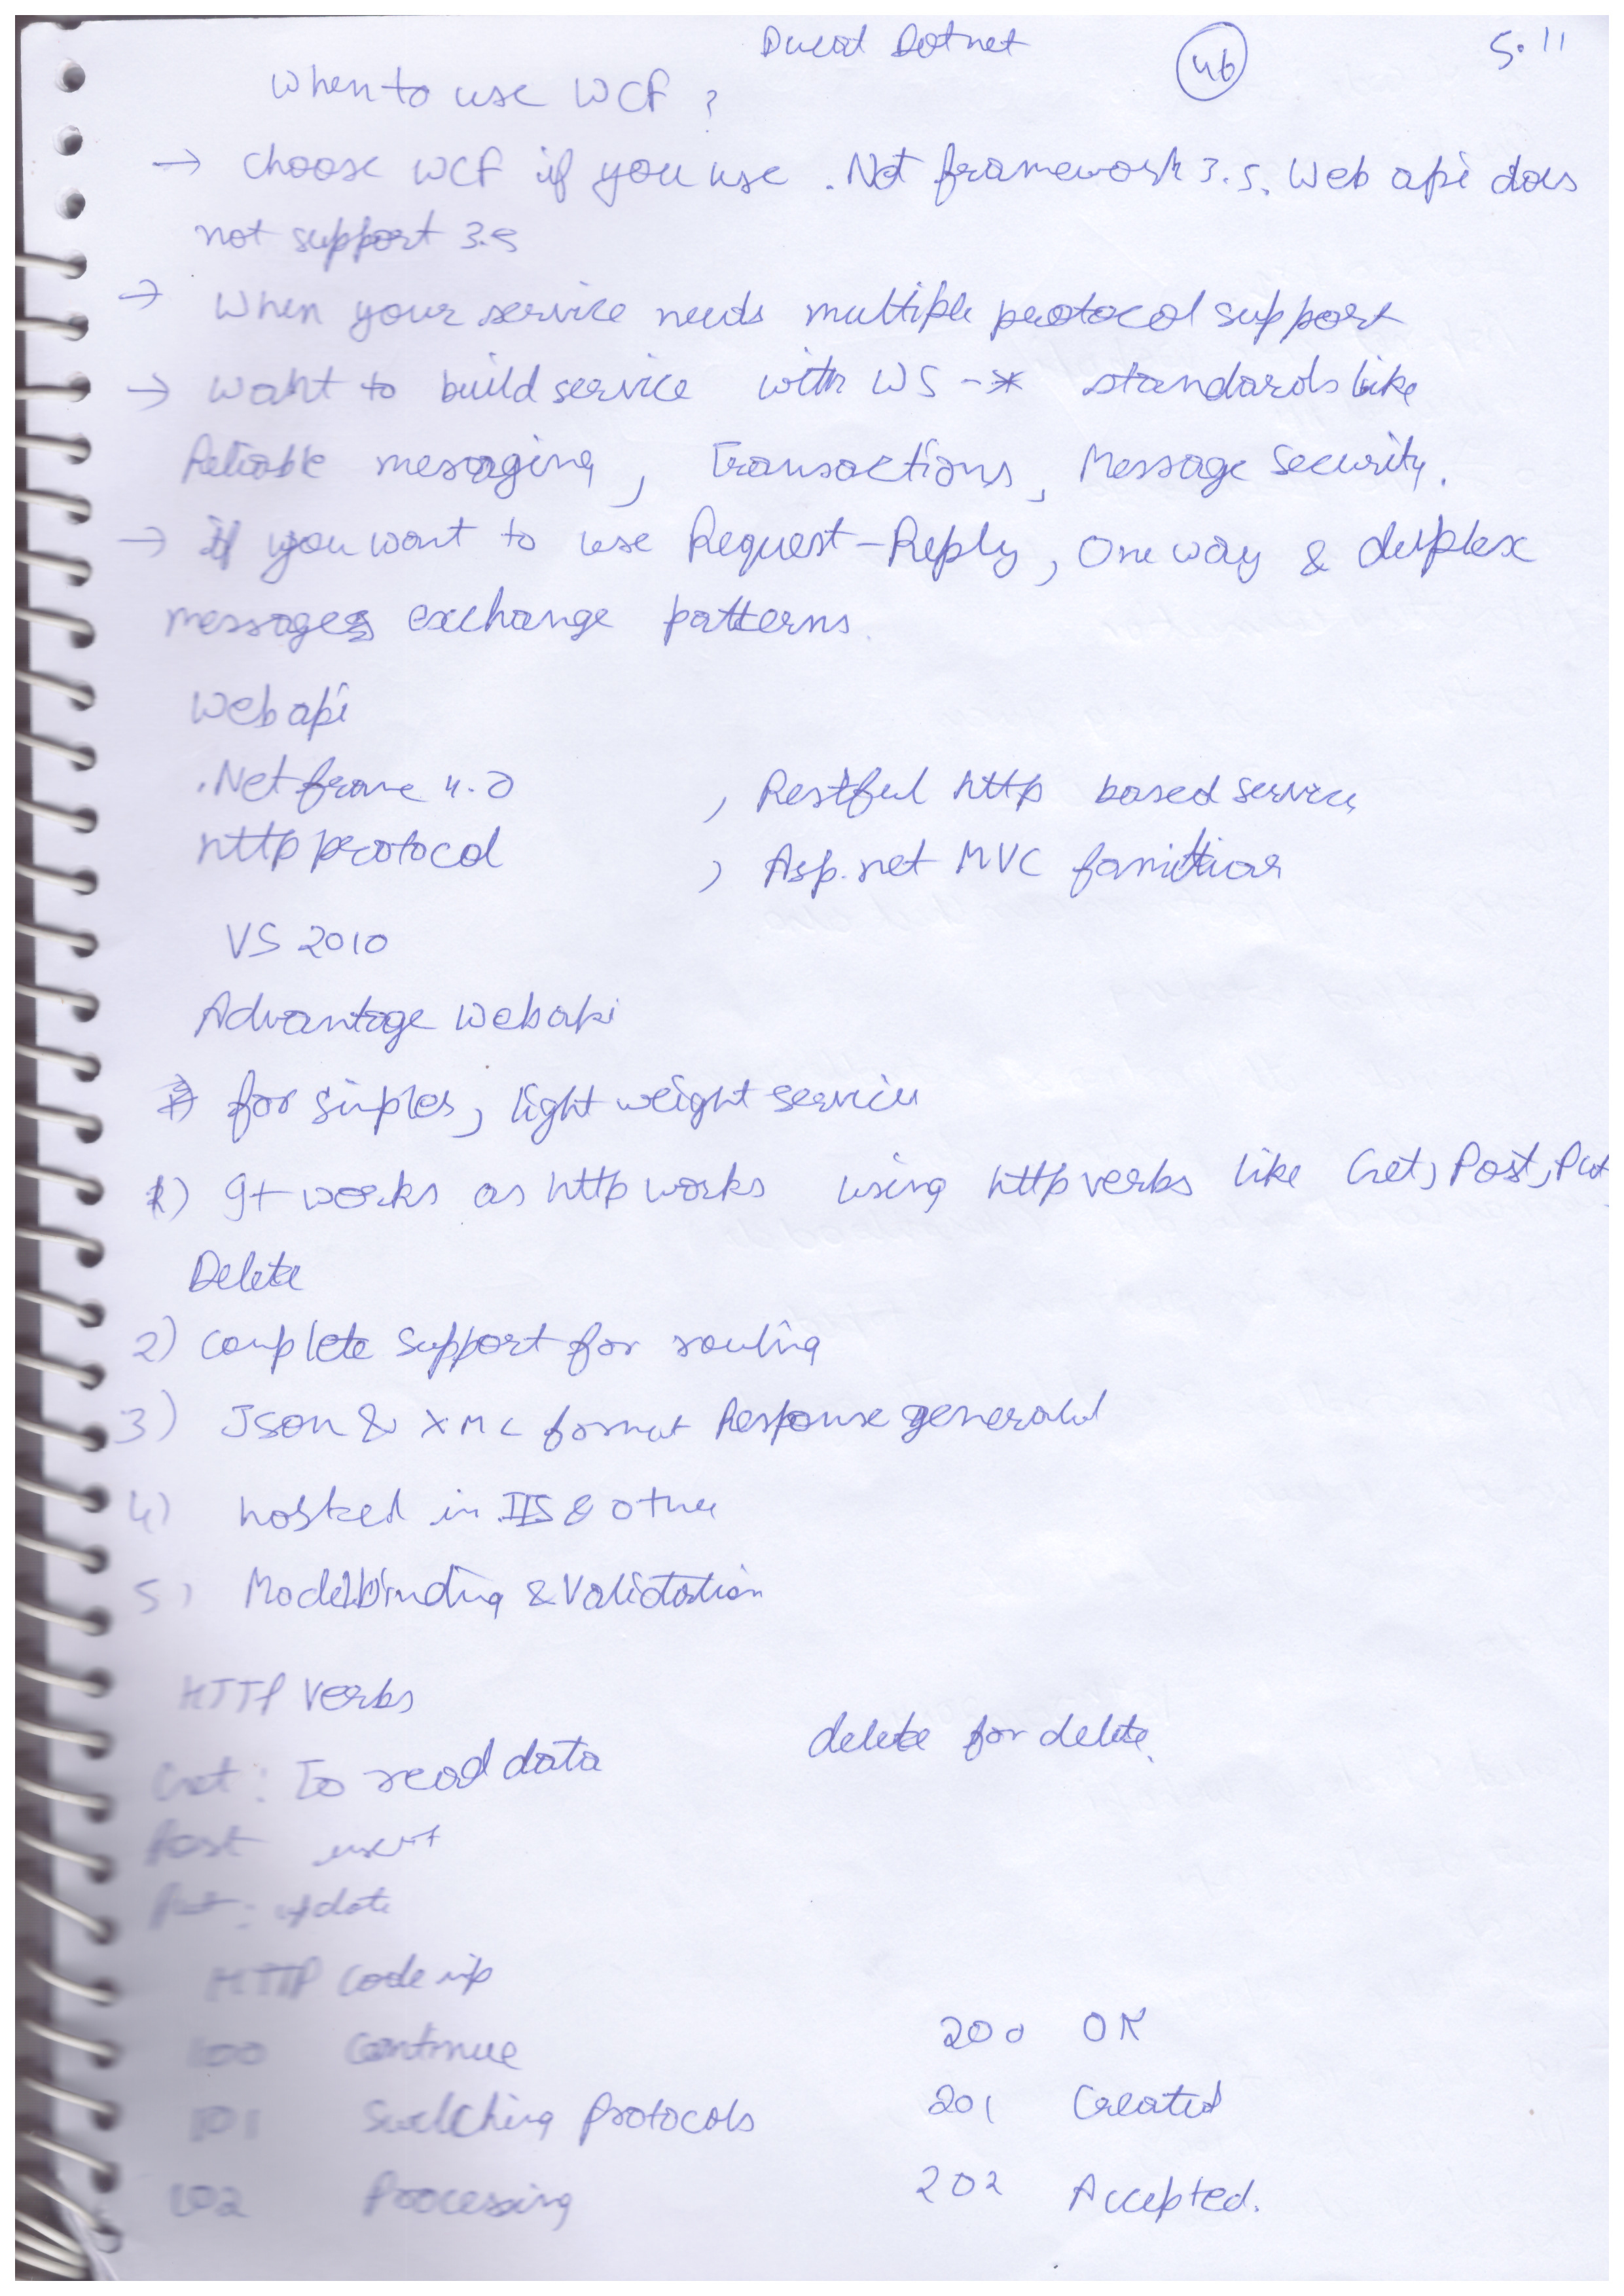 Ducat Dotnet 46 5.11
When to use WCF ?
→ choose WCF if you use .Net framework 3.5. Web api does
not support 3.5
→ When your service needs multiple protocol support
→ want to build service with WS-* standards like
Reliable messaging, Transactions, Message Security.
→ if you want to use Request-Reply, One way & duplex
messages exchange patterns.
Web api
.Net frame 4.0 , Restful http based services
http protocol , Asp.net MVC
VS 2010
Advantage Web api
for simples, light weight service
1) It works as http works using http verbs like Get, Post, Put,
Delete
2) complete support for routing
3) Json & XML format Response generated
4) hosted in IIS & other
5) Model binding & Validation
HTTP Verbs
Get : To read data delete for delete.
Post insert
Put : update
HTTP Code
100 Continue 200 OK
101 Switching protocols 201 Created
102 Processing 202 Accepted.